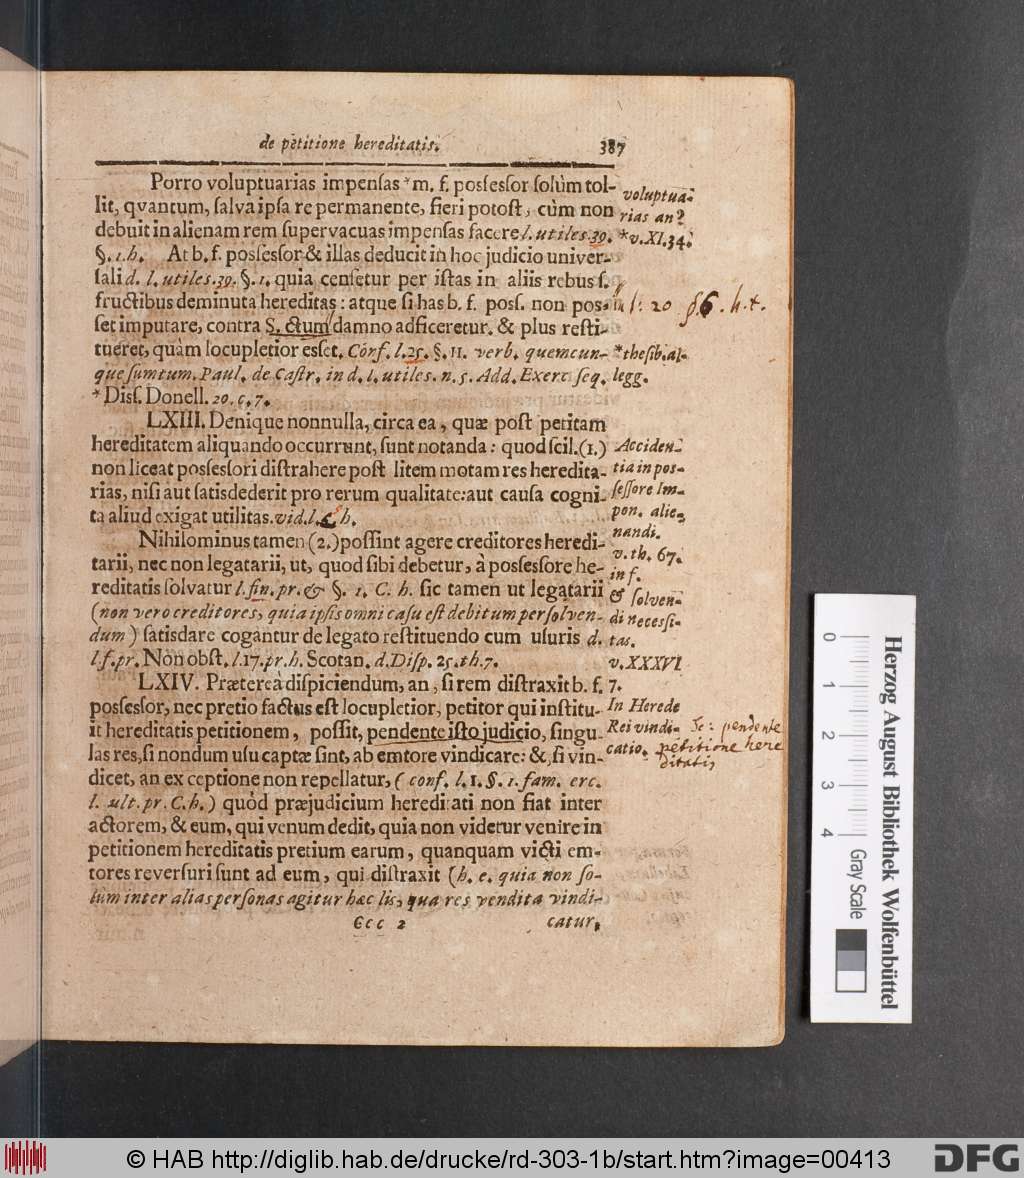 de petitione hereditatis. 387
Porro voluptuarias impenſas *m. f. poſſeſſor ſolùm tol-
lit, qvantum, ſalva ipſa re permanente, fieri potoſt, cùm non
debuit in alienam rem ſupervacuas impenſas facere l. utiles. 39.
§. 1. h. At b. f. poſſeſſor & illas deducit in hoc judicio univer-
ſali d. l. utiles. 39. §. 1. quia cenſetur per iſtas in aliis rebus ſ.
fructibus deminuta hereditas: atque ſi has b. f. poſſ. non poſ-
ſet imputare, contra S. ctum damno adficeretur. & plus reſti-
tueret, quàm locupletior eſſet. Conf. l. 25. §. 11. verb. quemcun-
que ſumtum. Paul. de Caſtr. in d. l. utiles. n. 5. Add. Exerc. ſeq.
* Diſſ. Donell. 20. c. 7.
LXIII. Denique nonnulla, circa ea, quæ poſt petitam
hereditatem aliquando occurrunt, ſunt notanda: quod ſcil. (1.)
non liceat poſſeſſori diſtrahere poſt litem motam res heredita-
rias, niſi aut ſatisdederit pro rerum qualitate: aut cauſa cogni-
ta aliud exigat utilitas. vid. l. h.
Nihilominus tamen (2.) poſſint agere creditores heredi-
tarii, nec non legatarii, ut, quod ſibi debetur, à poſſeſſore he-
reditatis ſolvatur l. fin. pr. & §. 1. C. h. ſic tamen ut legatarii
(non vero creditores, quia ipſis omni caſu eſt debitum perſolven-
dum) ſatisdare cogantur de legato reſtituendo cum uſuris d.
l. f. pr. Non obſt. l. 17. pr. h. Scotan. d. Diſp. 25. th. 7.
LXIV. Præterea diſpiciendum, an, ſi rem diſtraxit b. f.
poſſeſſor, nec pretio factus eſt locupletior, petitor qui inſtitu-
it hereditatis petitionem, poſſit, pendente iſto judicio, ſingu-
las res, ſi nondum uſu captæ ſint, ab emtore vindicare: &, ſi vin-
dicet, an exceptione non repellatur, (conf. l. 1. §. 1. fam. erc.
l. ult. pr. C. h.) quòd præjudicium hereditati non fiat inter
actorem, & eum, qui venum dedit, quia non videtur venire in
petitionem hereditatis pretium earum, quanquam victi em-
tores reverſuri ſunt ad eum, qui diſtraxit (h. e. quia non ſo-
lùm inter alias perſonas agitur hæc lis, qua res vendita vindi-
Ccc 2 catur,
voluptua-
rias an?
*v. XI. 34.
l. 20 §. 6. h. t.
* theſib. al-
legg.
Acciden-
tia in poſ-
ſeſſore Im-
pon. alie-
nandi.
v. th. 67.
in f.
& ſolven-
di neceſſi-
tas.
v. XXXVI
7.
In Herede
Rei vindi-
catio.
Sc: pendente
petitione here
ditatis
0 1 2 3 4
Gray Scale
Herzog August Bibliothek Wolfenbüttel
© HAB http://diglib.hab.de/drucke/rd-303-1b/start.htm?image=00413
DFG